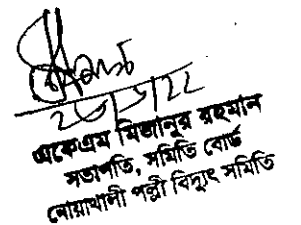 ২৩/১/২২
একেএম মিজানুর রহমান
সভাপতি, সমিতি বোর্ড
নোয়াখালী পল্লী বিদ্যুৎ সমিতি